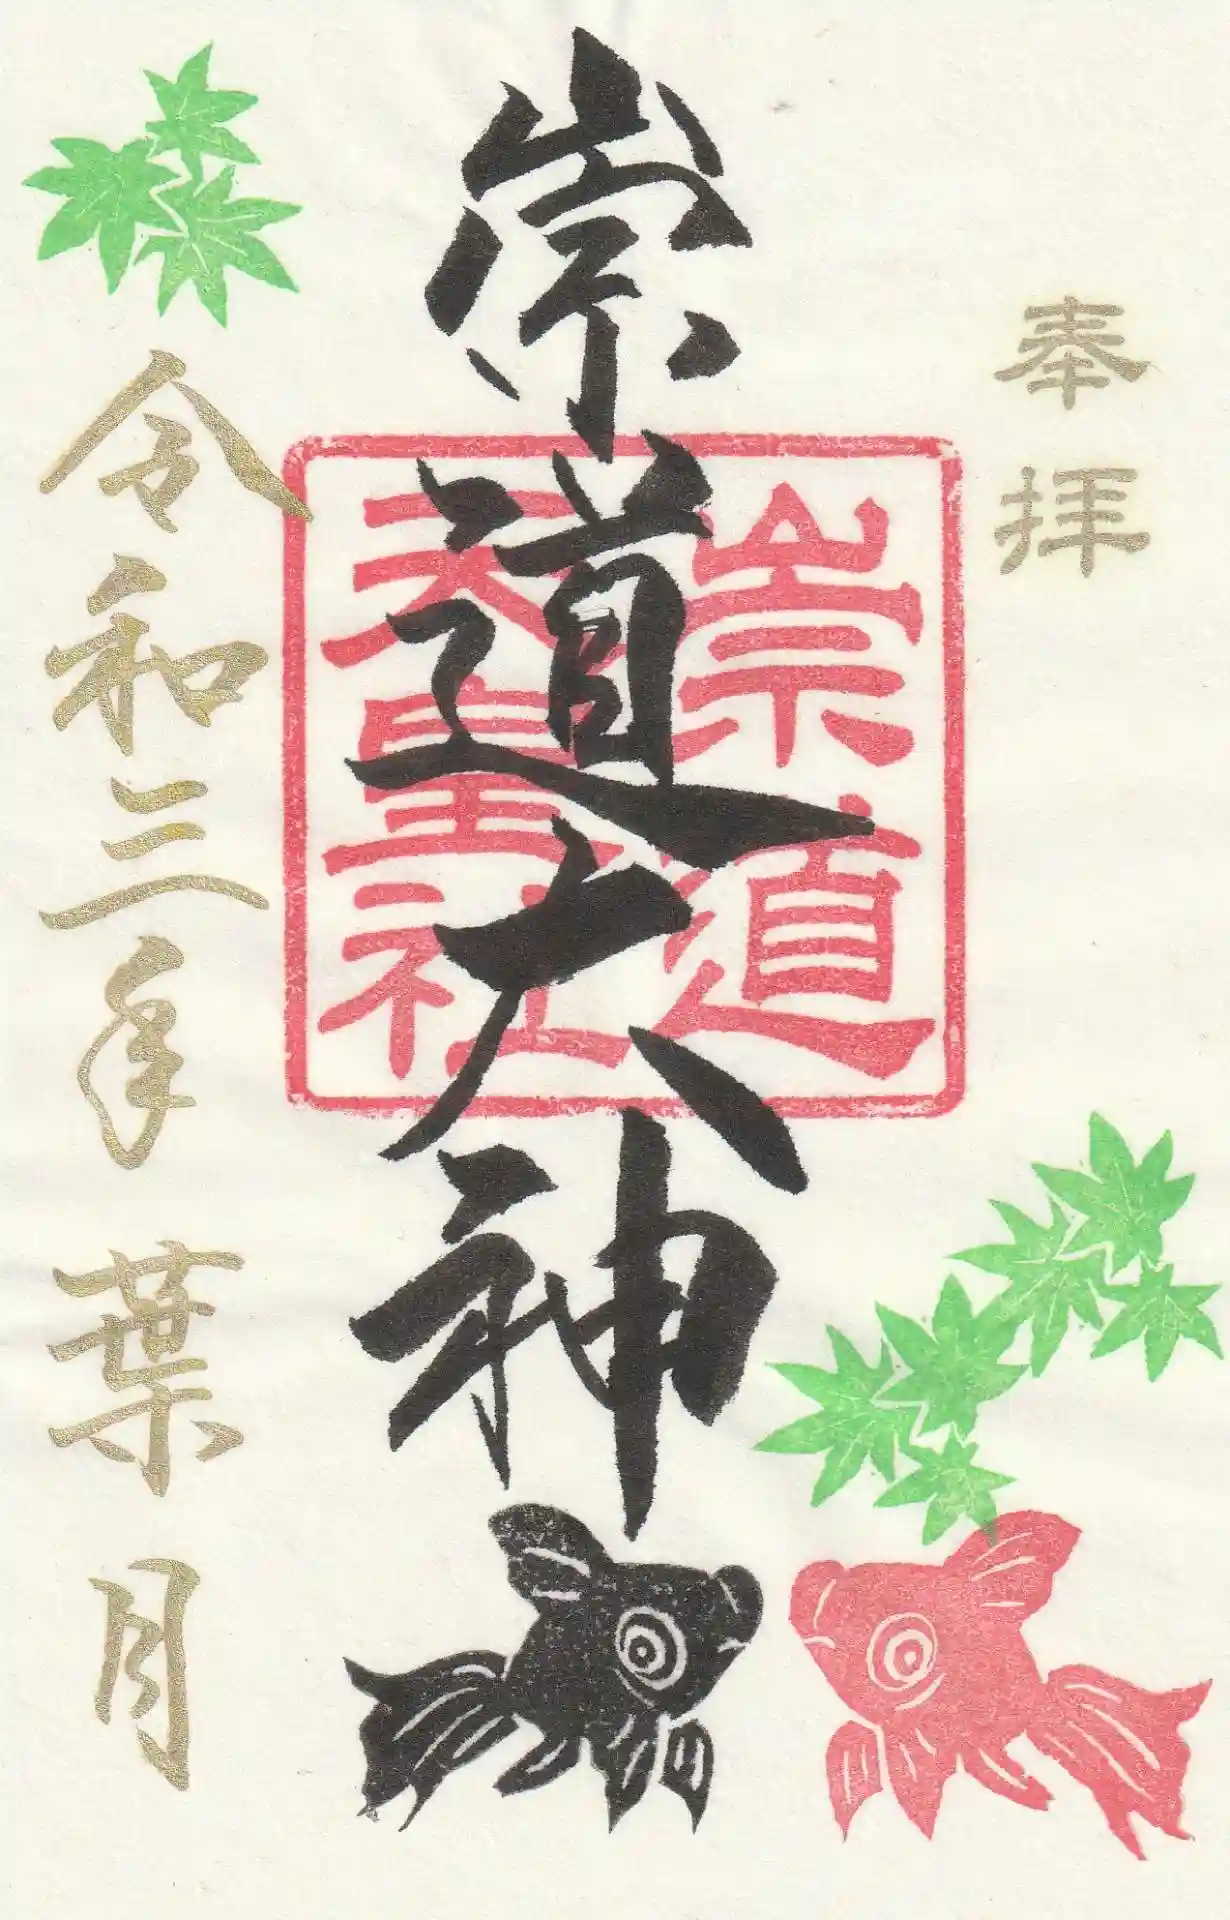 奉拝
崇道大神
崇道
天皇社
令和三年 葉月